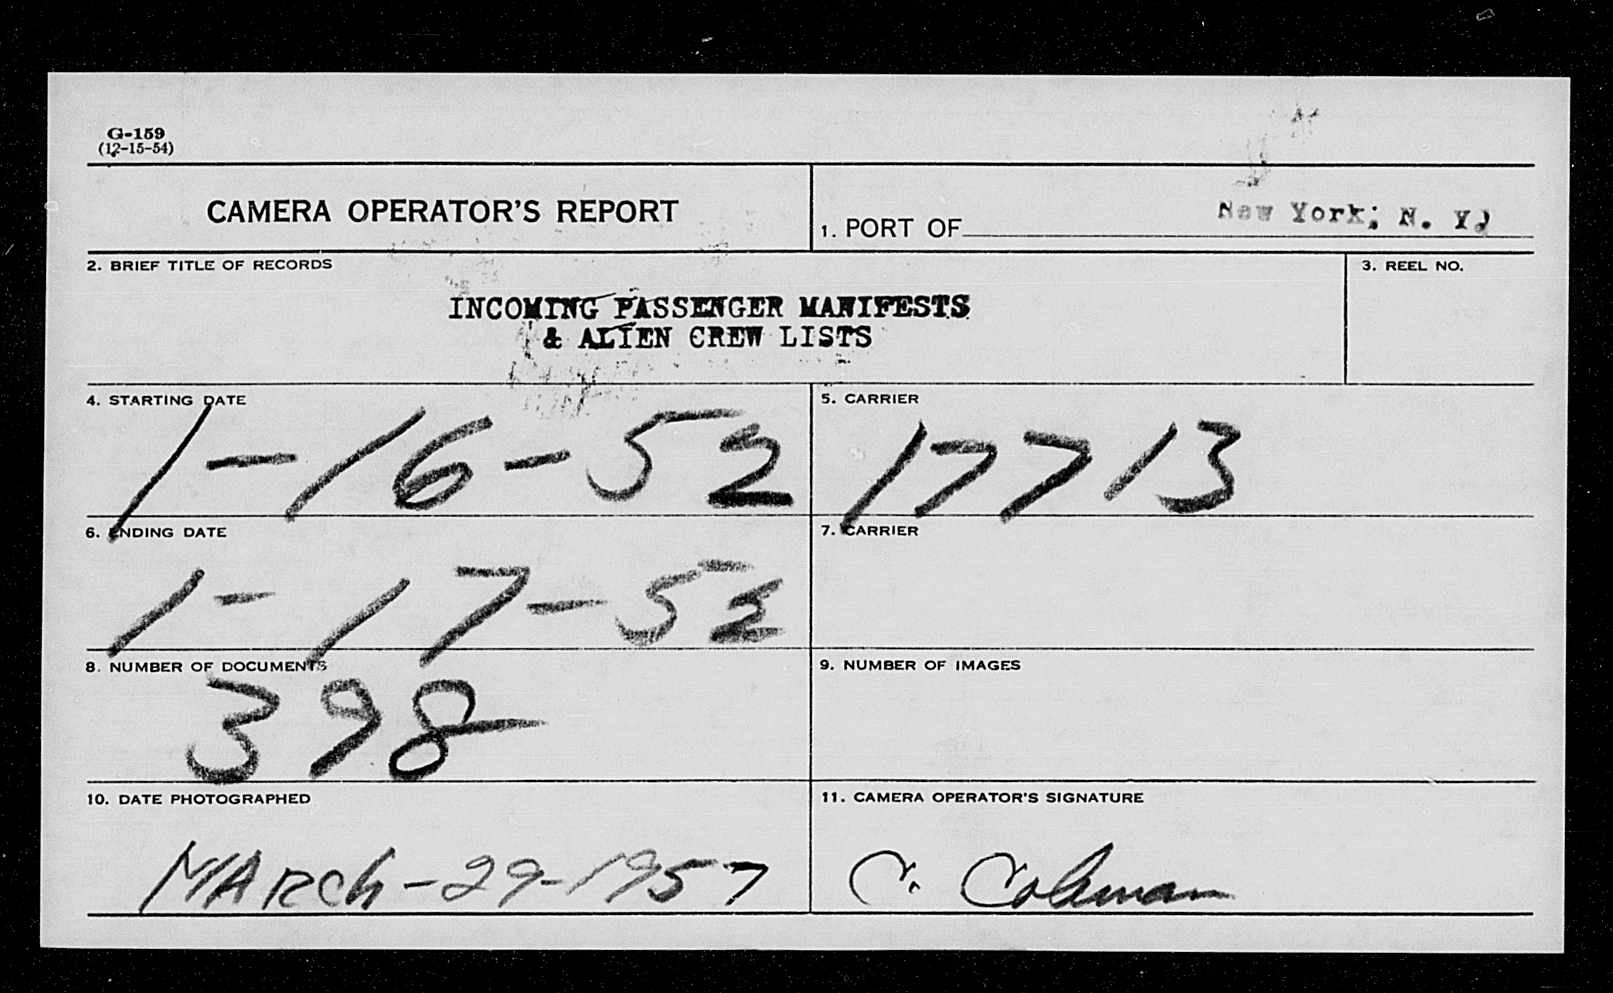 G-159
(12-15-54)
CAMERA OPERATOR'S REPORT
1. PORT OF New York, N. Y.
2. BRIEF TITLE OF RECORDS
3. REEL NO.
INCOMING PASSENGER MANIFESTS
& ALIEN CREW LISTS
4. STARTING DATE
5. CARRIER
1-16-52
17713
6. ENDING DATE
7. CARRIER
1-17-52
8. NUMBER OF DOCUMENTS
9. NUMBER OF IMAGES
398
10. DATE PHOTOGRAPHED
11. CAMERA OPERATOR'S SIGNATURE
MARch-29-1957
C. Coleman